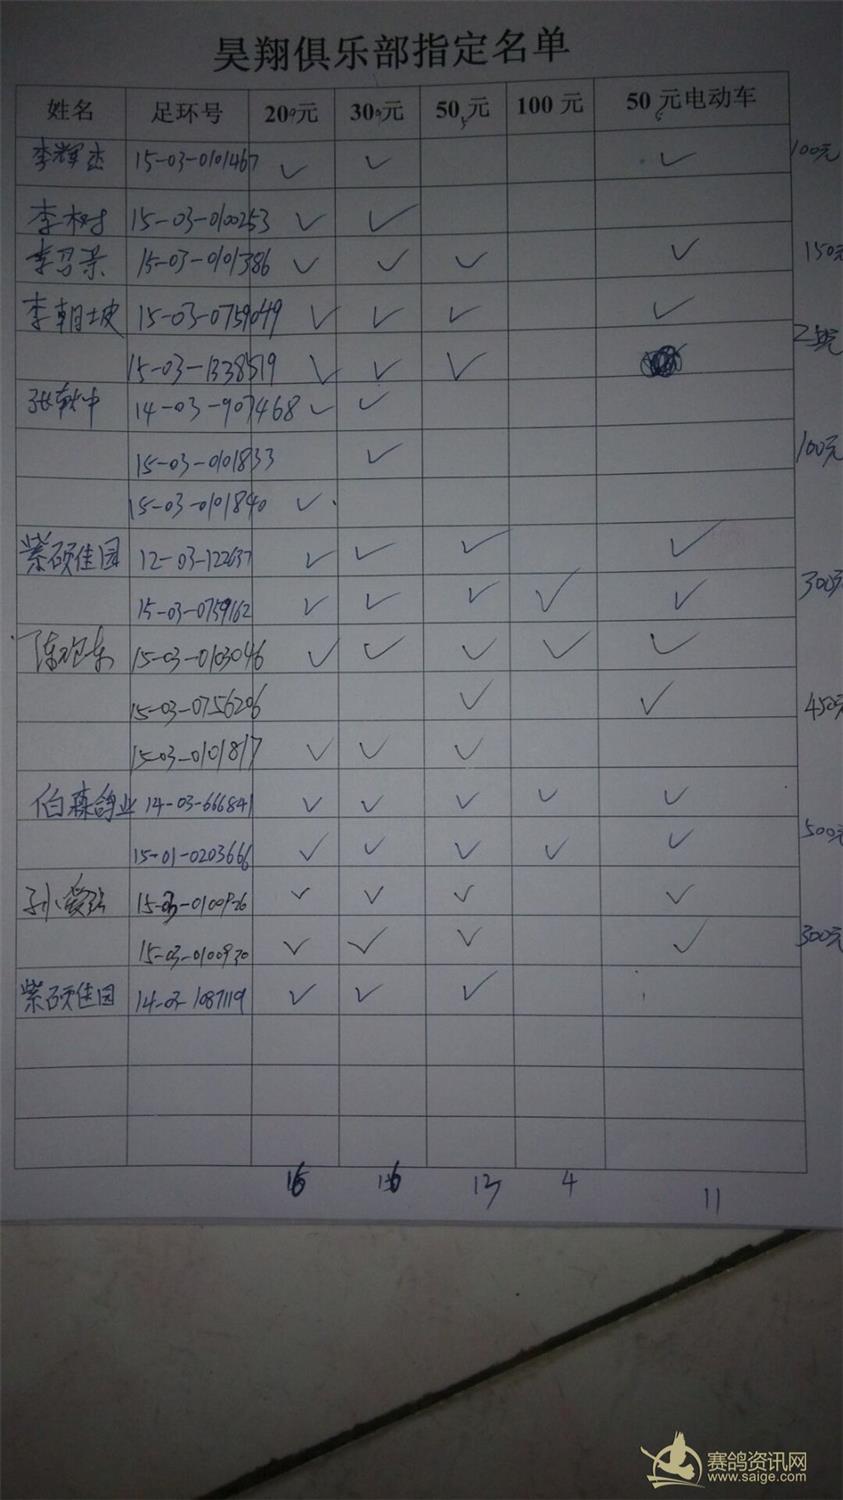 昊翔俱乐部指定名单
姓名 足环号 20元 30元 50元 100元 50元电动车
李辉杰 15-03-0101467 ✓ ✓ ✓ 100元
李树 15-03-0100253 ✓ ✓
李召荣 15-03-0101386 ✓ ✓ ✓ ✓ 150元
李朝坡 15-03-0759049 ✓ ✓ ✓ ✓
15-03-1338519 ✓ ✓ ✓
张软中 14-03-907468 ✓ ✓
15-03-0101833 ✓ 100元
15-03-0101840 ✓
紫硕佳园 12-03-122637 ✓ ✓ ✓ ✓
15-03-0759162 ✓ ✓ ✓ ✓ ✓ 300元
陈 15-03-0103046 ✓ ✓ ✓ ✓ ✓
15-03-0756206 ✓ ✓ 450元
15-03-0101817 ✓ ✓ ✓
伯森鸽业 14-03-666841 ✓ ✓ ✓ ✓ ✓
15-01-0203666 ✓ ✓ ✓ ✓ ✓ 500元
孙 15-03-0100926 ✓ ✓ ✓ ✓
15-03-0100930 ✓ ✓ ✓ ✓ 300元
紫硕佳园 14-03-1087119 ✓ ✓ ✓
16 16 13 4 11
赛鸽资讯网
www.saige.com